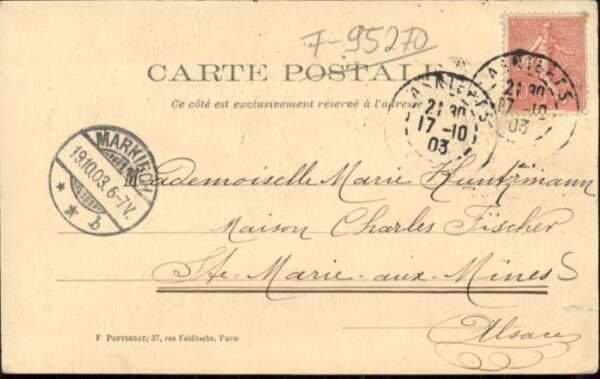 F-95270
CARTE POSTALE
Ce côté est exclusivement réservé à l'adresse
ASNIERES
21 30
17 -10
03
ASNIERES
21 30
17 -10
03
MARKIRCH
19.10.03.6-7V.
* b *
Mademoiselle Marie Kuntzmann
Maison Charles Fischer
Ste-Marie-aux-Mines
Alsace
F POUYDEBAT, 37, rue Faidherbe, Paris